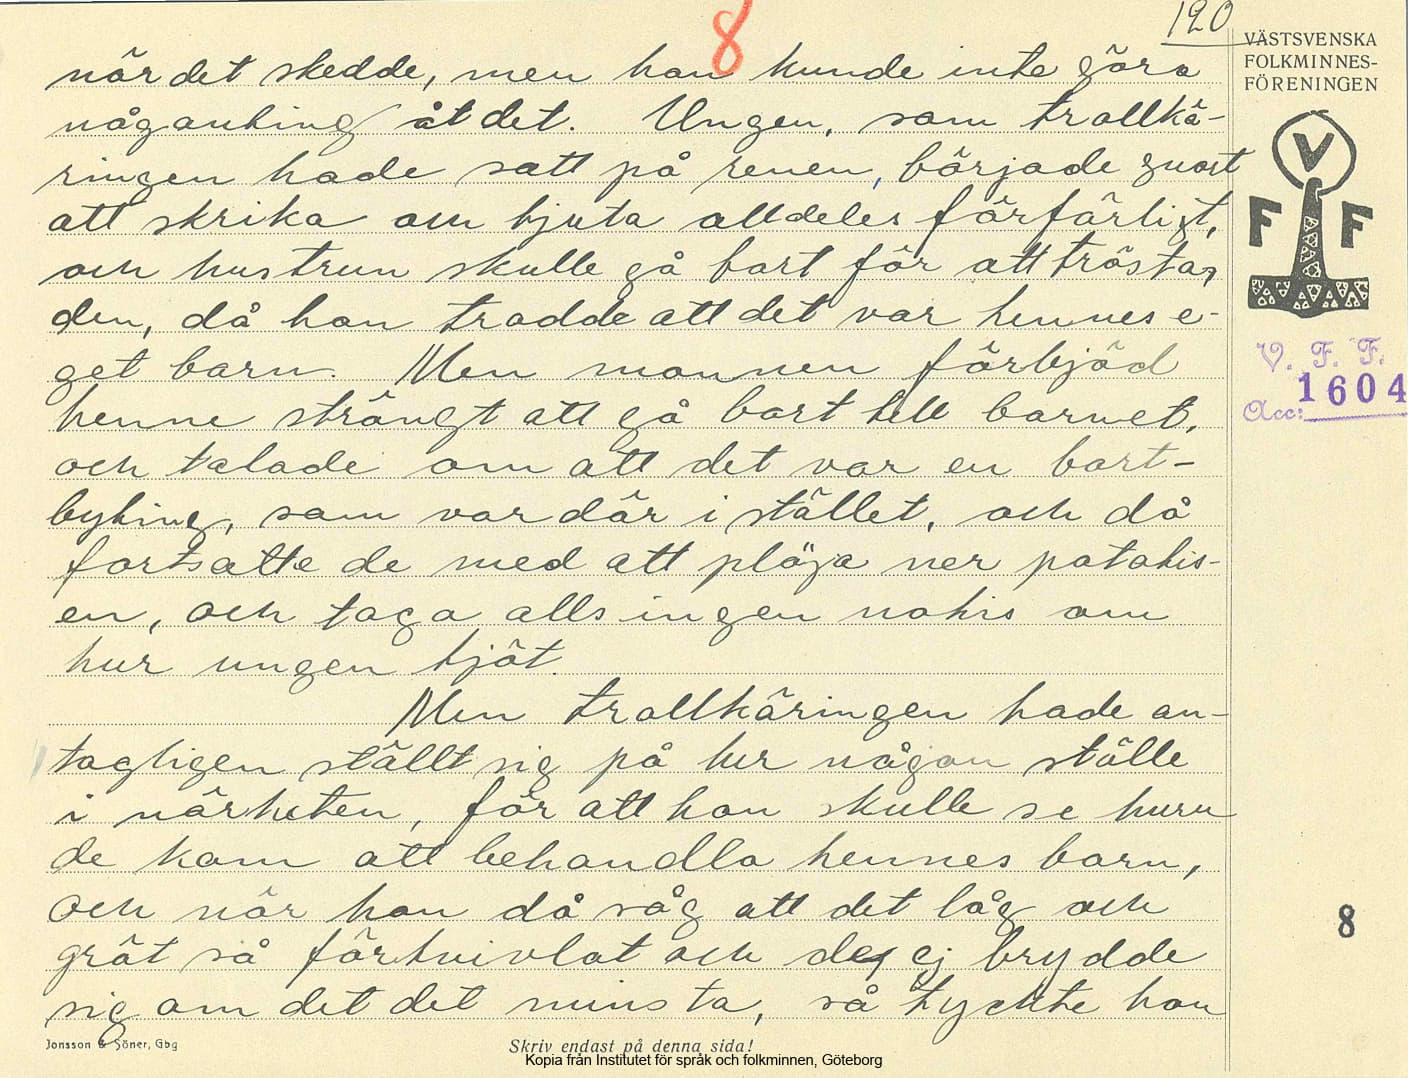 8
120
VÄSTSVENSKA
FOLKMINNES-
FÖRENINGEN
när det skedde, men han kunde inte göra
någonting åt det. Ungen, som trollkä-
ringen hade satt på renen, började snart
att skrika och tjuta alldeles förfärligt,
och hustrun skulle gå bort för att trösta
den, då hon trodde att det var hennes e-
get barn. Men mannen förbjöd
henne strängt att gå bort till barnet,
och talade om att det var en bort-
byting, som var där i stället, och då
fortsatte de med att plöja ner potatis-
en, och taga alls ingen notis om
hur ungen tjöt.
Men trollkäringen hade an-
tagligen ställt sig på hur någon ställe
i närheten, för att hon skulle se huru
de kom att behandla hennes barn,
och när hon då såg att det låg och
grät så förtvivlat och de ej brydde
sig om det det minsta, så tyckte hon
V
F F
V. F. F.
Acc: 1604
8
Jonsson & Söner, Gbg
Skriv endast på denna sida!
Kopia från Institutet för språk och folkminnen, Göteborg